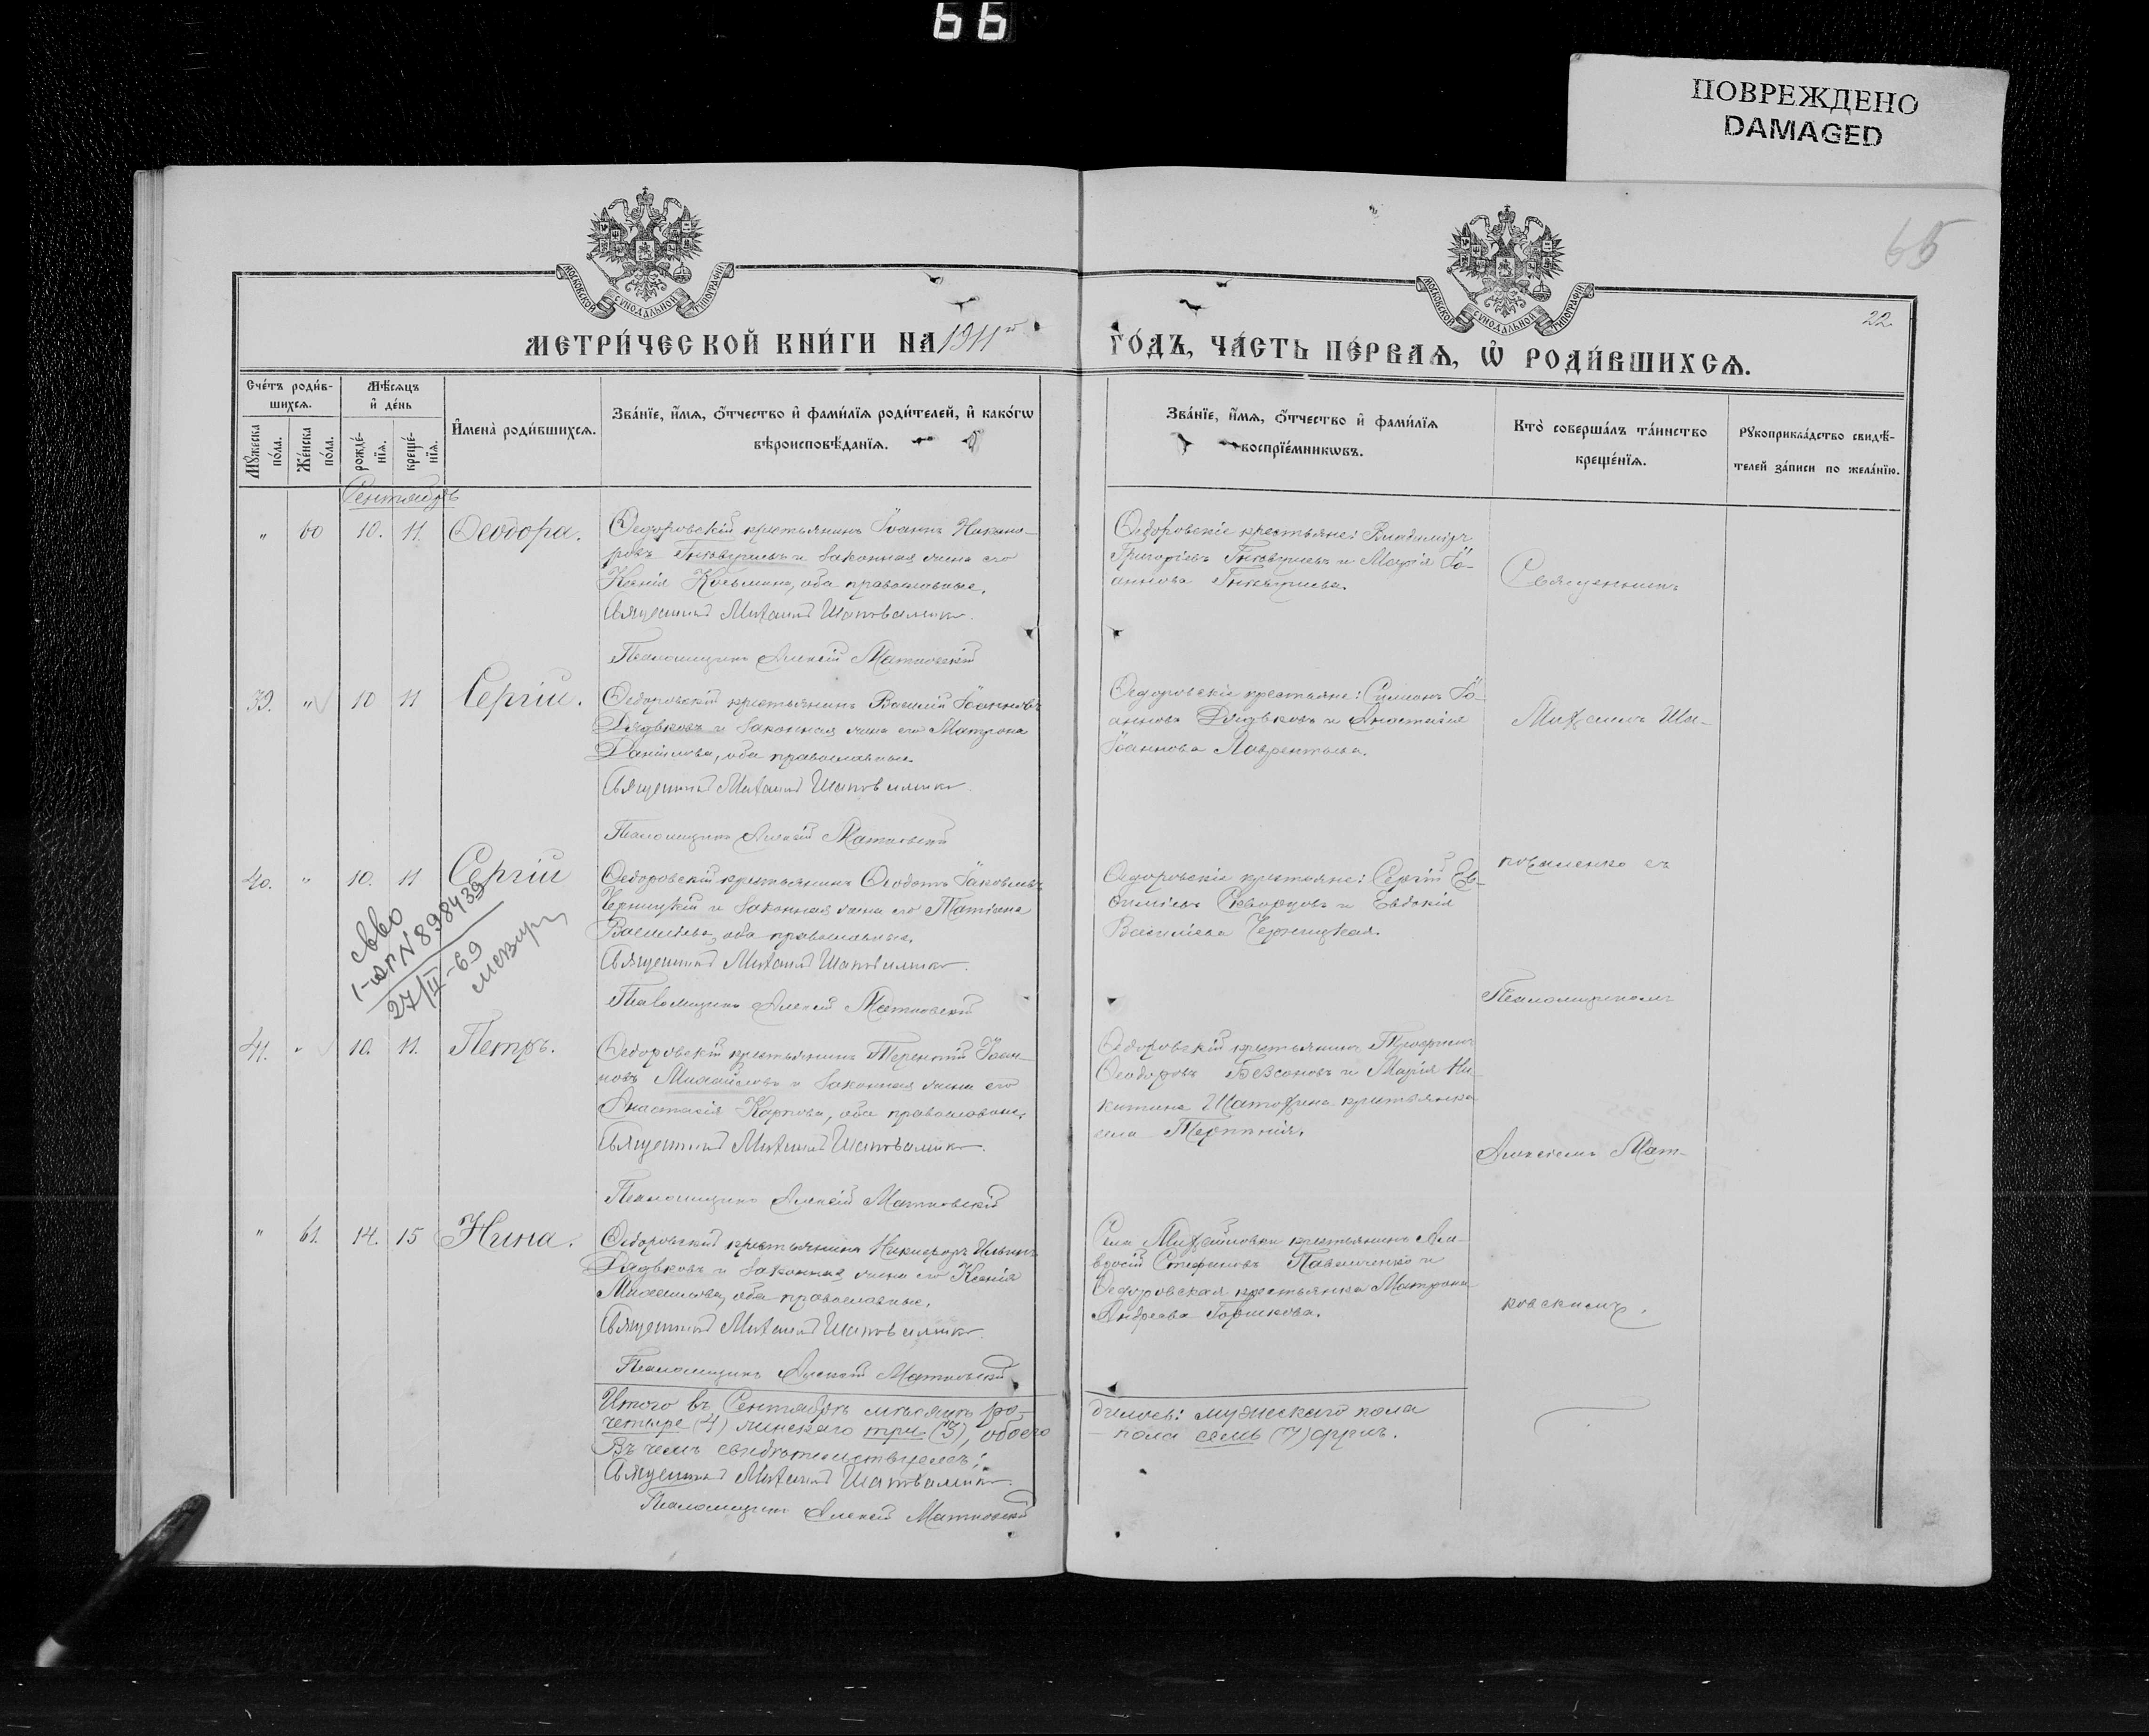 66
ПОВРЕЖДЕНО
DAMAGED
65
22
МОСКОВСКОЙ СѴНОДАЛЬНОЙ ТИПОГРАФІИ
МОСКОВСКОЙ СѴНОДАЛЬНОЙ ТИПОГРАФІИ
МЕТРИ́ЧЕСКОЙ КНИ́ГИ НА 1911й ГО́ДЪ, ЧА́СТЬ ПЕ́РВАѦ, Ѡ҆ РОДИ́ВШИХСѦ.
Сче́тъ роди́в-
шихсѧ.
Мѣ́сѧцъ
и҆ де́нь
Мꙋ́жеска по́ла.
Же́нска по́ла.
рожде́-
нїѧ.
креще́-
нїѧ.
И҆мена̀ роди́вшихсѧ.
Зва́нїе, и҆́мѧ, ѻ҆́тчество и҆ фами́лїѧ роди́телей, и҆ како́гѡ
вѣроисповѣ́данїѧ.
Зва́нїе, и҆́мѧ, ѻ҆́тчество и҆ фами́лїѧ
воспрїе́мникѡвъ.
Кто̀ соверша́лъ та́инство
креще́нїѧ.
Рꙋкоприкла́дство свидѣ́-
телей за́писи по жела́нїю.
Сентябрь
" 60 10. 11. Ѳеодора.
Ѳедоровскій крестьянинъ Іоаннъ Никано-
ровъ и законная жена его
Ксенія Косьмина, оба православные.
Священникъ Михаилъ Шаповаленко.
Псаломщикъ Алексій Матковскій
Ѳедоровскіе крестьяне: Владиміръ
Григоріевъ и Марія Іо-
аннова
Священникъ
39. " 10 11 Сергій.
Ѳедоровскій крестьянинъ Василій Іоанновъ
Дядьковъ и законная жена его Матрона
Даніилова, оба православные.
Священникъ Михаилъ Шаповаленко.
Псаломщикъ Алексій Матковскій
Ѳедоровскіе крестьяне: Симеонъ Іо-
анновъ Дядьковъ и Анастасія
Іоаннова Лаврентьева.
Михаилъ Ша-
40. " 10. 11 Сергій
Ѳедоровскій крестьянинъ Ѳеодотъ Іаковлевъ
Черницкій и законная жена его Татіана
Васильева, оба православные.
Священникъ Михаилъ Шаповаленко.
Псаломщикъ Алексій Матковскій
Ѳедоровскіе крестьяне: Сергій Ев-
ѳиміевъ Скворцовъ и Евдокія
Васильева Черницкая.
поваленко съ
Псаломщикомъ
с-во
I-юг N 898439
27/II-69
41. " 10. 11. Петръ.
Ѳедоровскій крестьянинъ Терентій Іоан-
новъ Михайловъ и законная жена его
Анастасія Карпова, оба православные.
Священникъ Михаилъ Шаповаленко.
Псаломщикъ Алексій Матковскій
Ѳедоровскій крестьянинъ Трофимъ
Ѳеодоровъ Безсоновъ и Марія Ни-
китина Шатохина крестьянка
села Терпѣнія.
Алексѣемъ Мат-
" 61. 14. 15 Нина.
Ѳедоровскій крестьянинъ Никифоръ Ильинъ
Дядьковъ и законная жена его Ксенія
Михаилова, оба православные.
Священникъ Михаилъ Шаповаленко.
Псаломщикъ Алексій Матковскій
Села Михайловки крестьянинъ Ам-
вросій Стефановъ Павличенко и
Ѳедоровская крестьянка Матрона
Андреева Горшкова.
ковскимъ.
Итого въ Сентябрѣ мѣсяцѣ ро-
дилось: мужескаго пола
четыре (4) женскаго три (3), обоего
пола семь (7) душъ.
Въ чемъ свидѣтельствуемъ:
Священникъ Михаилъ Шаповаленко.
Псаломщикъ Алексій Матковскій